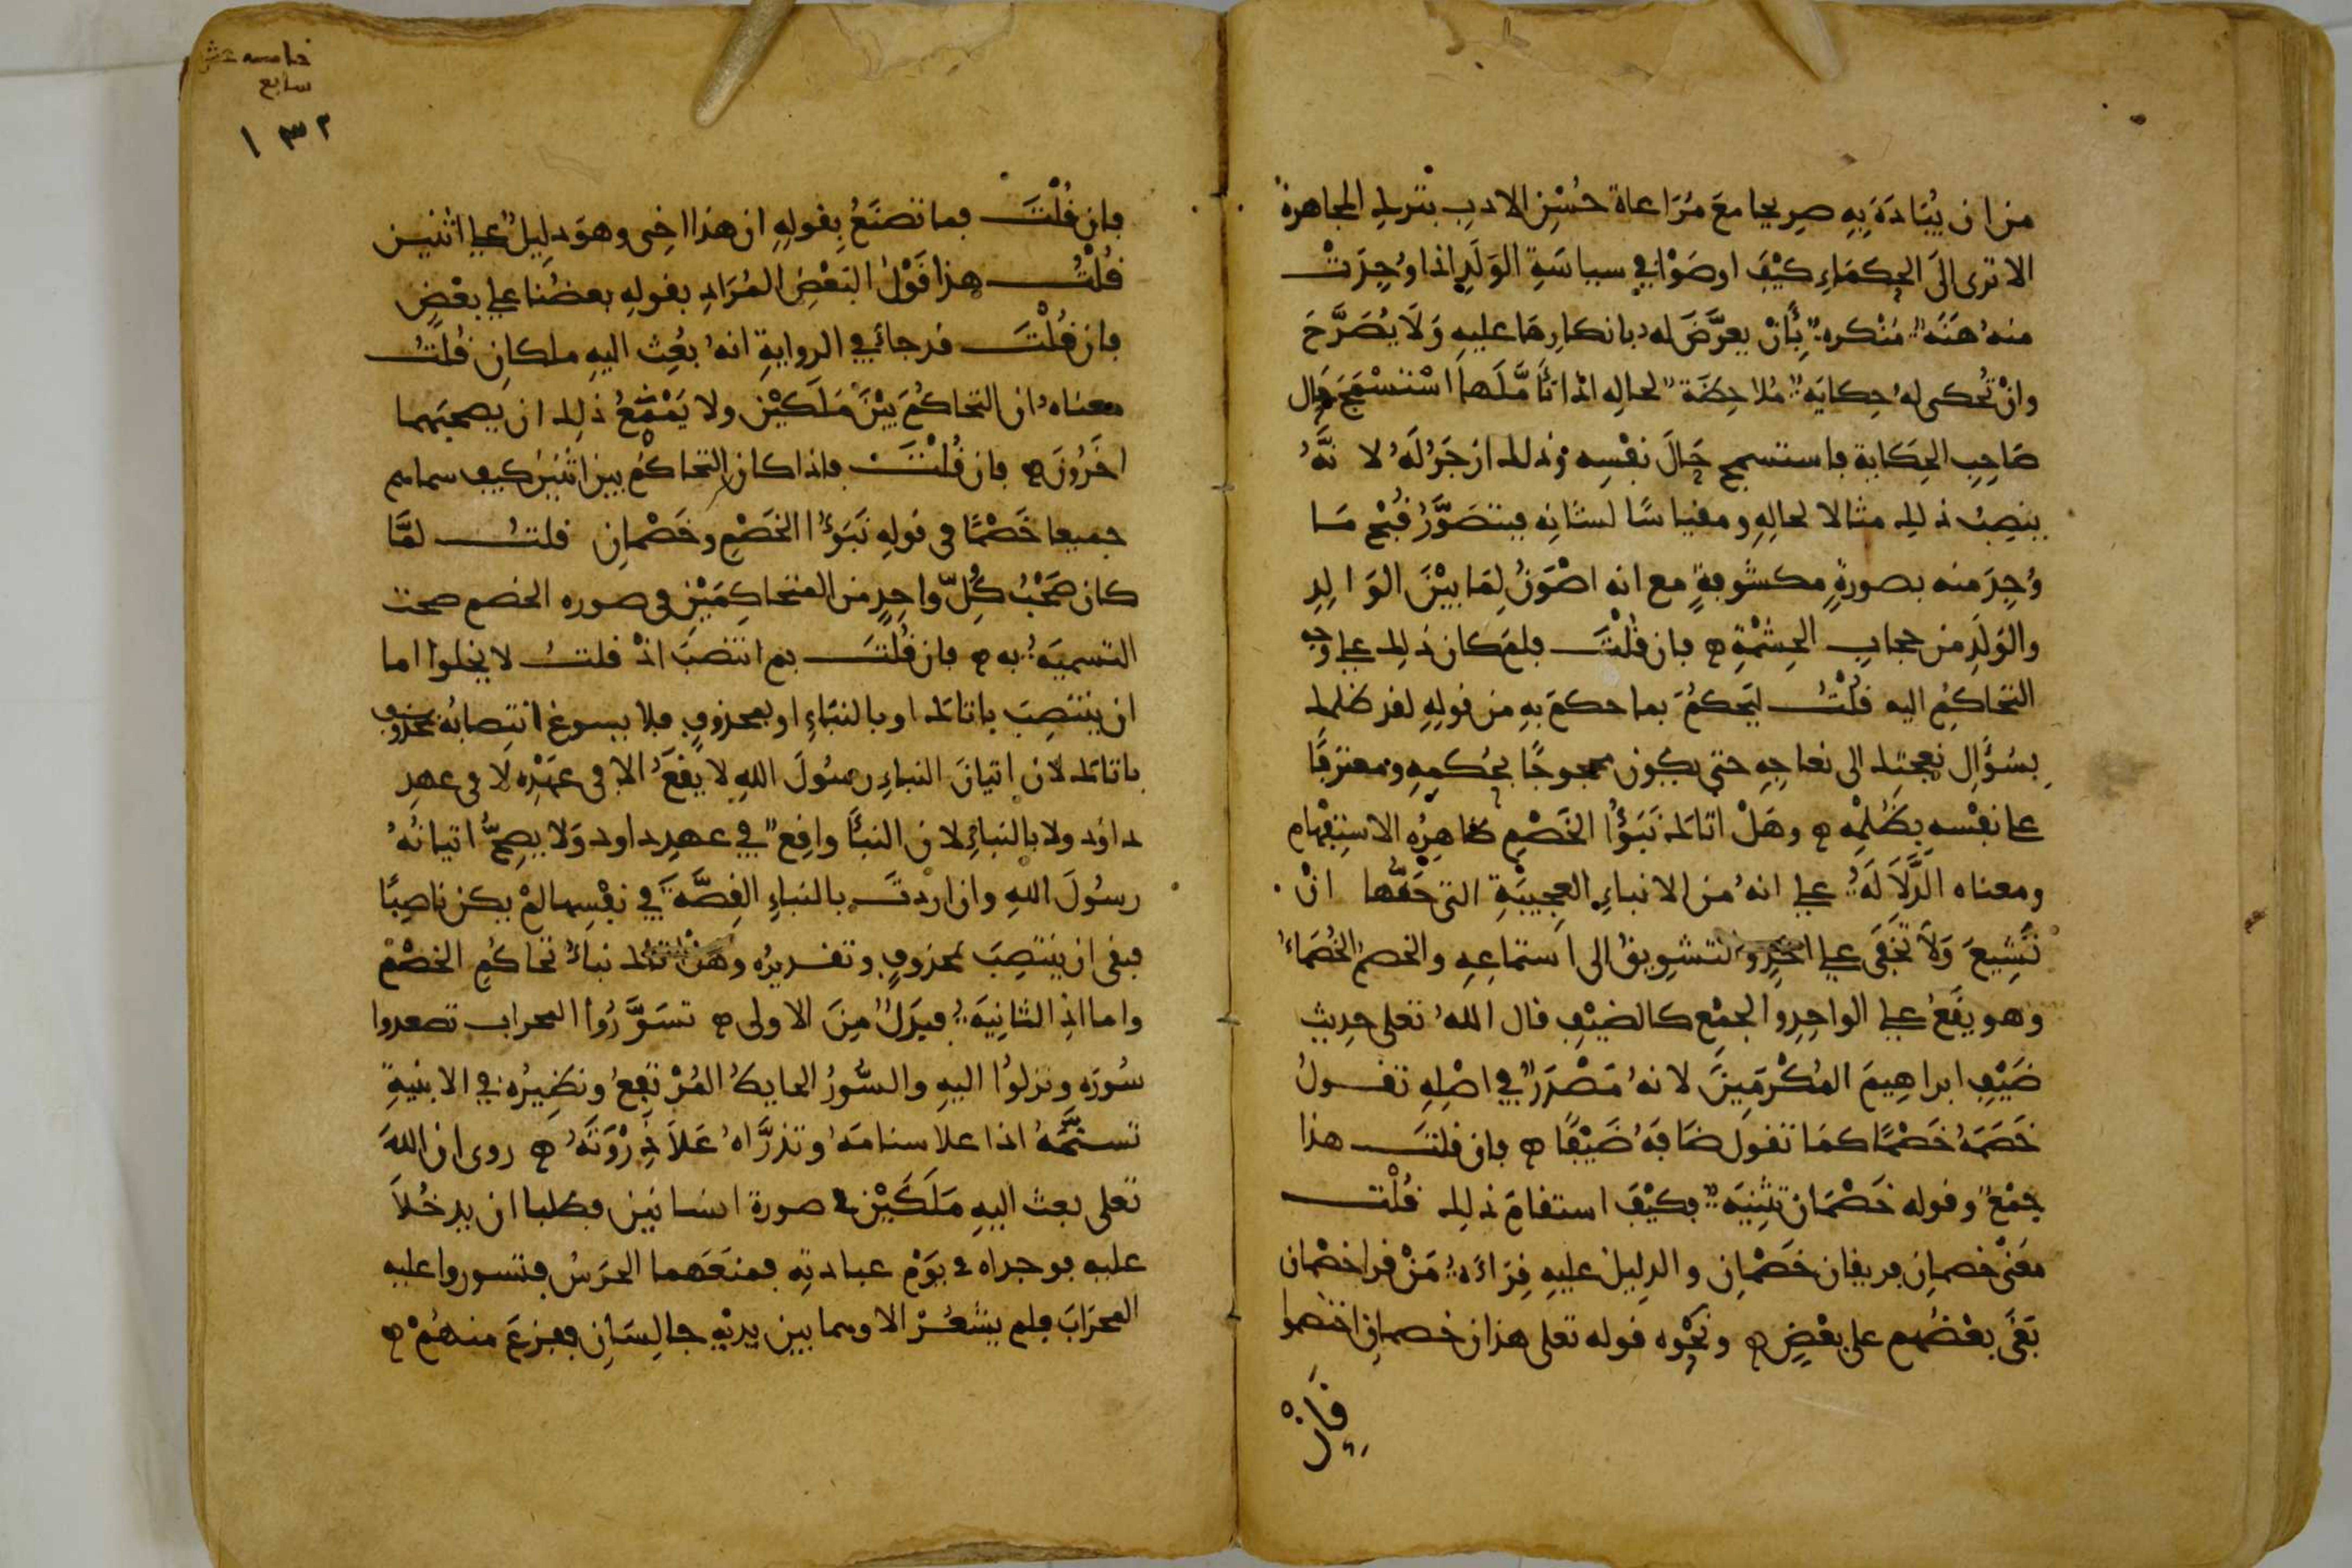 من ان يبادهَ بِهِ صريحا مع مُرَاعاة حُسْنِ الادبِ بترك المجاهرة
الا ترى الَى الحكمَاءِ كيْفَ اوصَوْا في سياسَةِ الوَلَدِ اذا وُجِدَتْ
منهُ هَنَةٌ مُنْكرهٌ بِأَنْ يعرَّضَ له بانكارِها عليهِ وَلَا يُصَرَّحَ
وانْ تُحكى لهُ حِكايَةٌ مُلاحِظَةٌ لحالِه اذا تأَمَّلَها اسْتسْمَجَ حَال
صَاحِبِ الحِكاية فاستسمج حَالَ نفْسِه وذلك ازجَرُ لَهُ لا نَّهُ
ينصِبُ ذلك مثالا لحالِهِ ومقياسًا لشانِه فيتصَوَّرُ قُبْحَ مَا
وُجِدَ منه بصورةٍ مكشُوفةٍ مع انه اصْوَنُ لِمَا بيْنَ الوَالِدِ
والوَلَدِ من حجابِ الحِشْمَةِ ه فان قُلْتَ فلمَ كان ذلك على وجه
التحاكُمِ اليه قُلْتُ ليَحكُمَ بما حكمَ بهِ من قولِهِ لقد ظلمك
بسُؤَالِ نعجتِك الى نعاجِهِ حتى يكون محجوجًا بحُكمِهِ ومعترفًا
على نفْسِه بظُلْمِه ه وهَلْ اتاكَ نَبَؤُا الخَصْمِ ظاهِرُه الاستِفهام
ومعناه الدَّلَالَةُ على انهُ من الانباءِ العجِيبَةِ التي حَقُّها انْ
تَشِيعَ وَلَا تخْفَى على احَدٍ و لتشوِيقُ الى استماعِهِ والخصمُ الخُصَمَاءُ
وهو يقَعُ على الواحِدِ والجمْعِ كالضيْفِ قال اللهُ تعلى حديث
ضَيْفِ ابراهِيمَ المُكْرَمِينَ لانهُ مَصْدَرٌ في اصْلِهِ تقولُ
خَصَمَهُ خَصْمًا كمَا تقول ضَافَهُ ضَيْفًا ه فان قلتَ هذا
جمْعٌ وقوله خَصْمَان تثْنِيَةٌ فكيْفَ استقامَ ذلك قُلْت
معَنْى خصمانِ فريقان خَصْمَانِ والدلِيلُ عليهِ قِرَاءَةُ مَنْ قرا خصْمان
بَغَى بعْضُهم على بعْضٍ ه ونحْوه قوله تعلى هذان خصمان اختصموا
فَإِنْ
خامسه عشر
سابع
١٣٢
فان قُلْتَ فما تصنَعُ بِقولِهِ ان هذا اخِى وهوَ دلِيلٌ على اثنين
قُلْتُ هذا قَوْلُ البَعْضِ المُرَادِ بقولِهِ بعضُنا على بعْضٍ
فان قُلْتَ قد جاءَ في الروايةِ انهُ بُعِث اليهِ ملكانِ قُلتُ
معناهُ ان التحاكُمَ بيْنَ مَلَكيْنِ ولا يَمْنَعُ ذلك ان يصحبَهما
اخَرُونَ ه فان قُلْتَ فاذا كان التحاكُمُ بين اثنَينِ كيف سماهم
جميعا خَصْمًا فى قولهِ نَبَؤُا الخَصْمِ وخَصْمانِ قلتُ لمَّا
كان صَحْبُ كُلِّ واحِدٍ من المتحاكِمَيْنِ فى صوره الخصم صحت
التسميَةُ به ه فان قُلتَ بم انتصَبَ اذْ قلتُ لا يخلوا اما
ان ينتصِبَ باتاك او بالنبَاءِ او بمحذوفٍ فلا يسوغ انتِصابُه بمحذوف
باتاك لان اتيانَ النباءِ رسُولَ اللهِ لا يقعُ الا فى عهْدِه لا فى عهدِ
داوُد ولا بالنباءِ لان النبأَ واقِعٌ في عهدِ داود وَلا يصِحُّ اتيانُهُ
رسُولَ اللهِ وان اردتَ بالنباءِ القِصَّةَ في نفْسِها لمْ يكن ناصِبًا
فبقى ان ينتصِبَ بمحذوفٍ وتقديرُه وهَلْ اتاك نباءُ تحاكُمِ الخصْمِ
واما اذِ الثانِيَةُ فبَدَلٌ مِنَ الاولى ه تسَوَّرُوا المحراب تصعدوا
سُورَه ونزلُوا اليهِ والسُّورُ الحايطُ المُرْتفِعُ ونظِيرُه في الابنيةِ
تسنَّمَهُ اذا علا سنامَهُ وتذرَّاهُ عَلَا ذِرْوَتَهُ ه روى ان اللهَ
تعلى بعث اليهِ مَلَكَيْنِ فى صورة انسانَين فطلبا ان يدخُلاَ
عليه فوجداه فى يوْم عبادتِه فمنَعَهما الحرَسُ فتسوروا عليه
المحرَابَ فلم يشعُرْ الا وهما بين يديْهِ جالِسَانِ ففزعَ منهُمْ ه